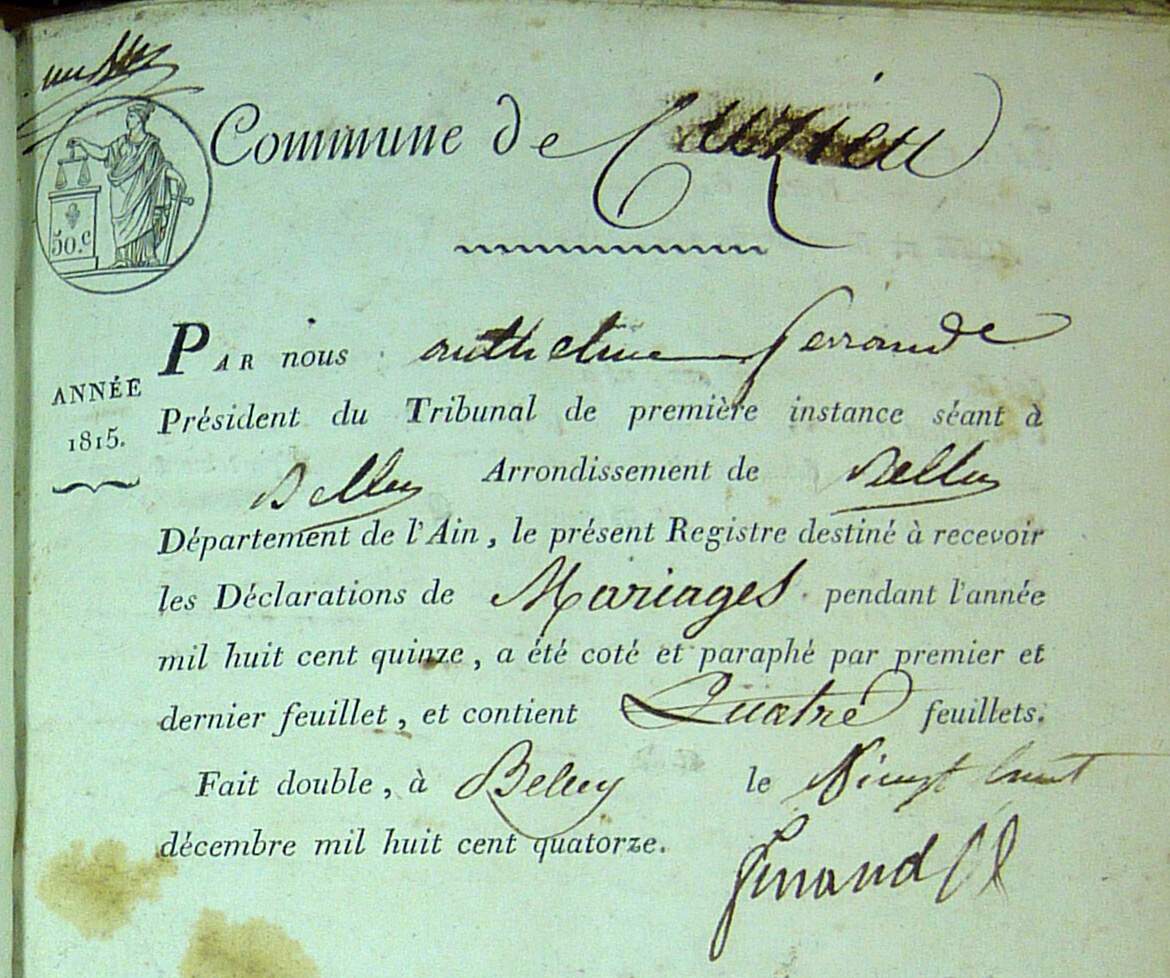 Commune de Cuzieu
50.c
PAR nous anthelme ferrand
ANNÉE
1815.
Président du Tribunal de première instance séant à
Belley Arrondissement de Belley
Département de l'Ain, le présent Registre destiné à recevoir
les Déclarations de Mariages pendant l'année
mil huit cent quinze, a été coté et paraphé par premier et
dernier feuillet, et contient Quatre feuillets.
Fait double, à Belley le Vingt huit
décembre mil huit cent quatorze.